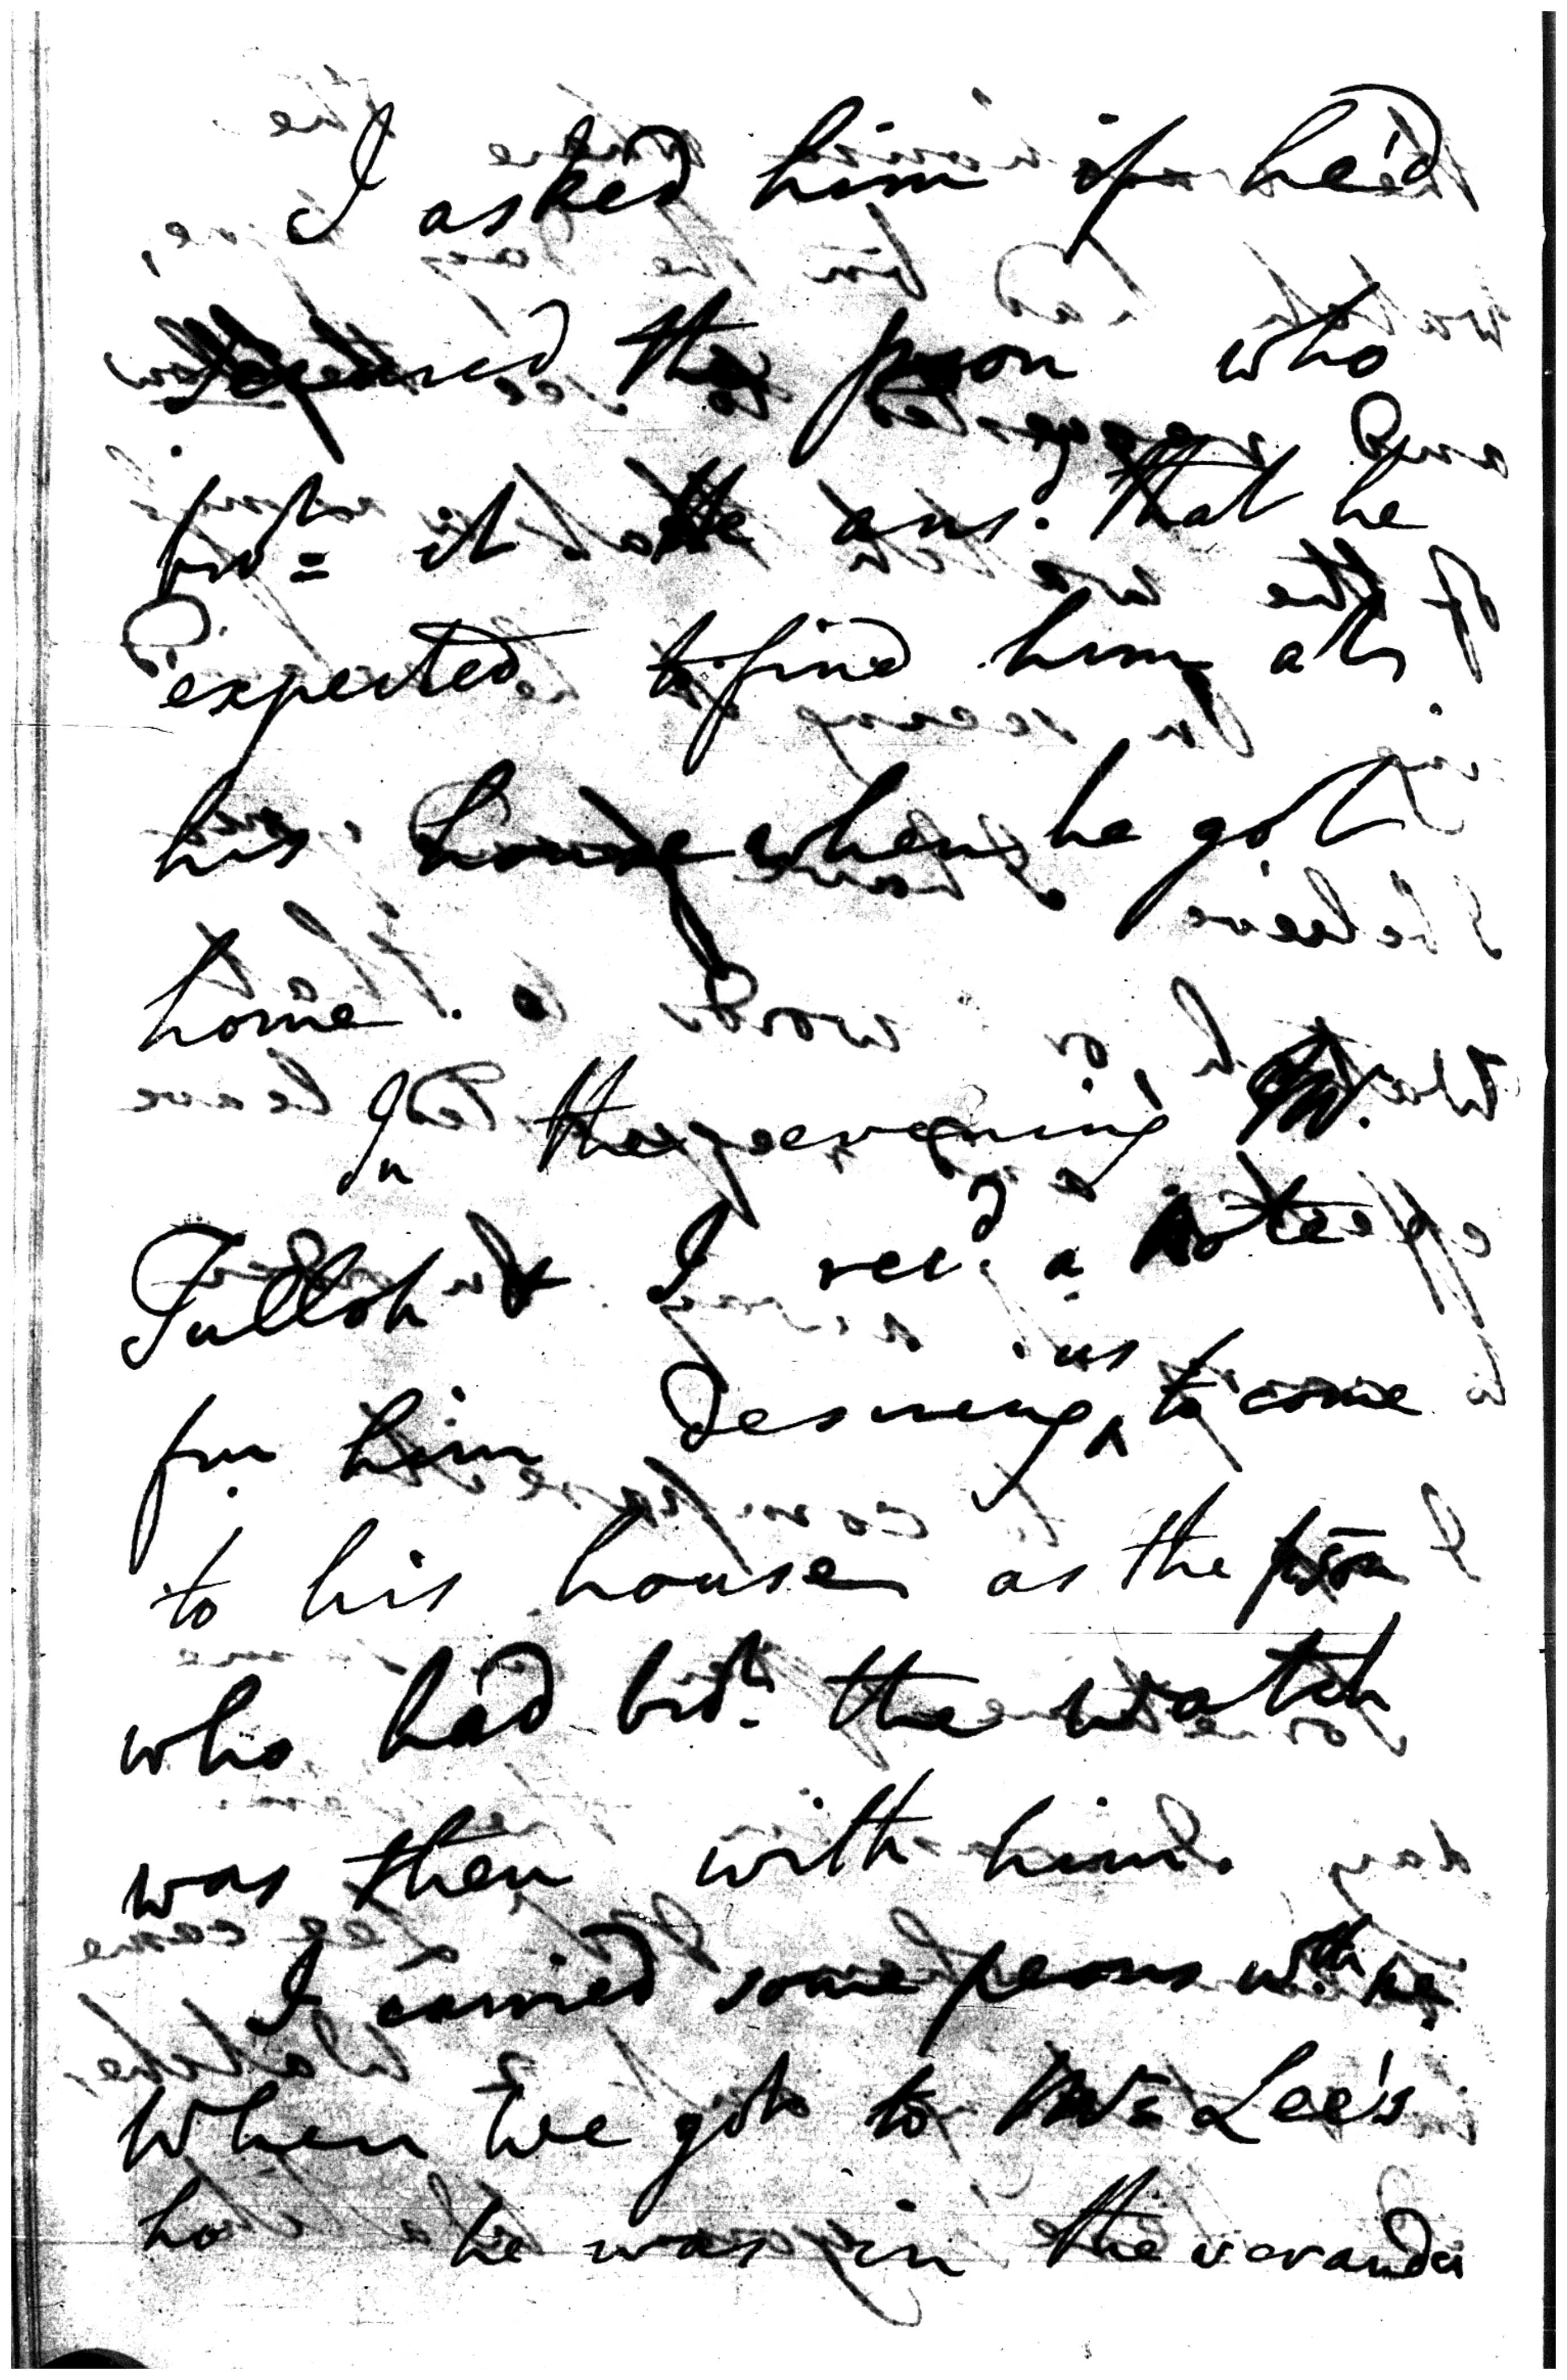 I asked him if he'd
the person who
bro^t = it He ans.d that he
expected to find him at
his house when he got
home.
In the evening Mr.
Tulloh & I rec.d a note
fm him desiring ^us to come
to his house as the pson
who had bro^t. the watch
was then with him.
I carried some peons w.th me
When we got to Mr = Lee's
ho he was in the veranda